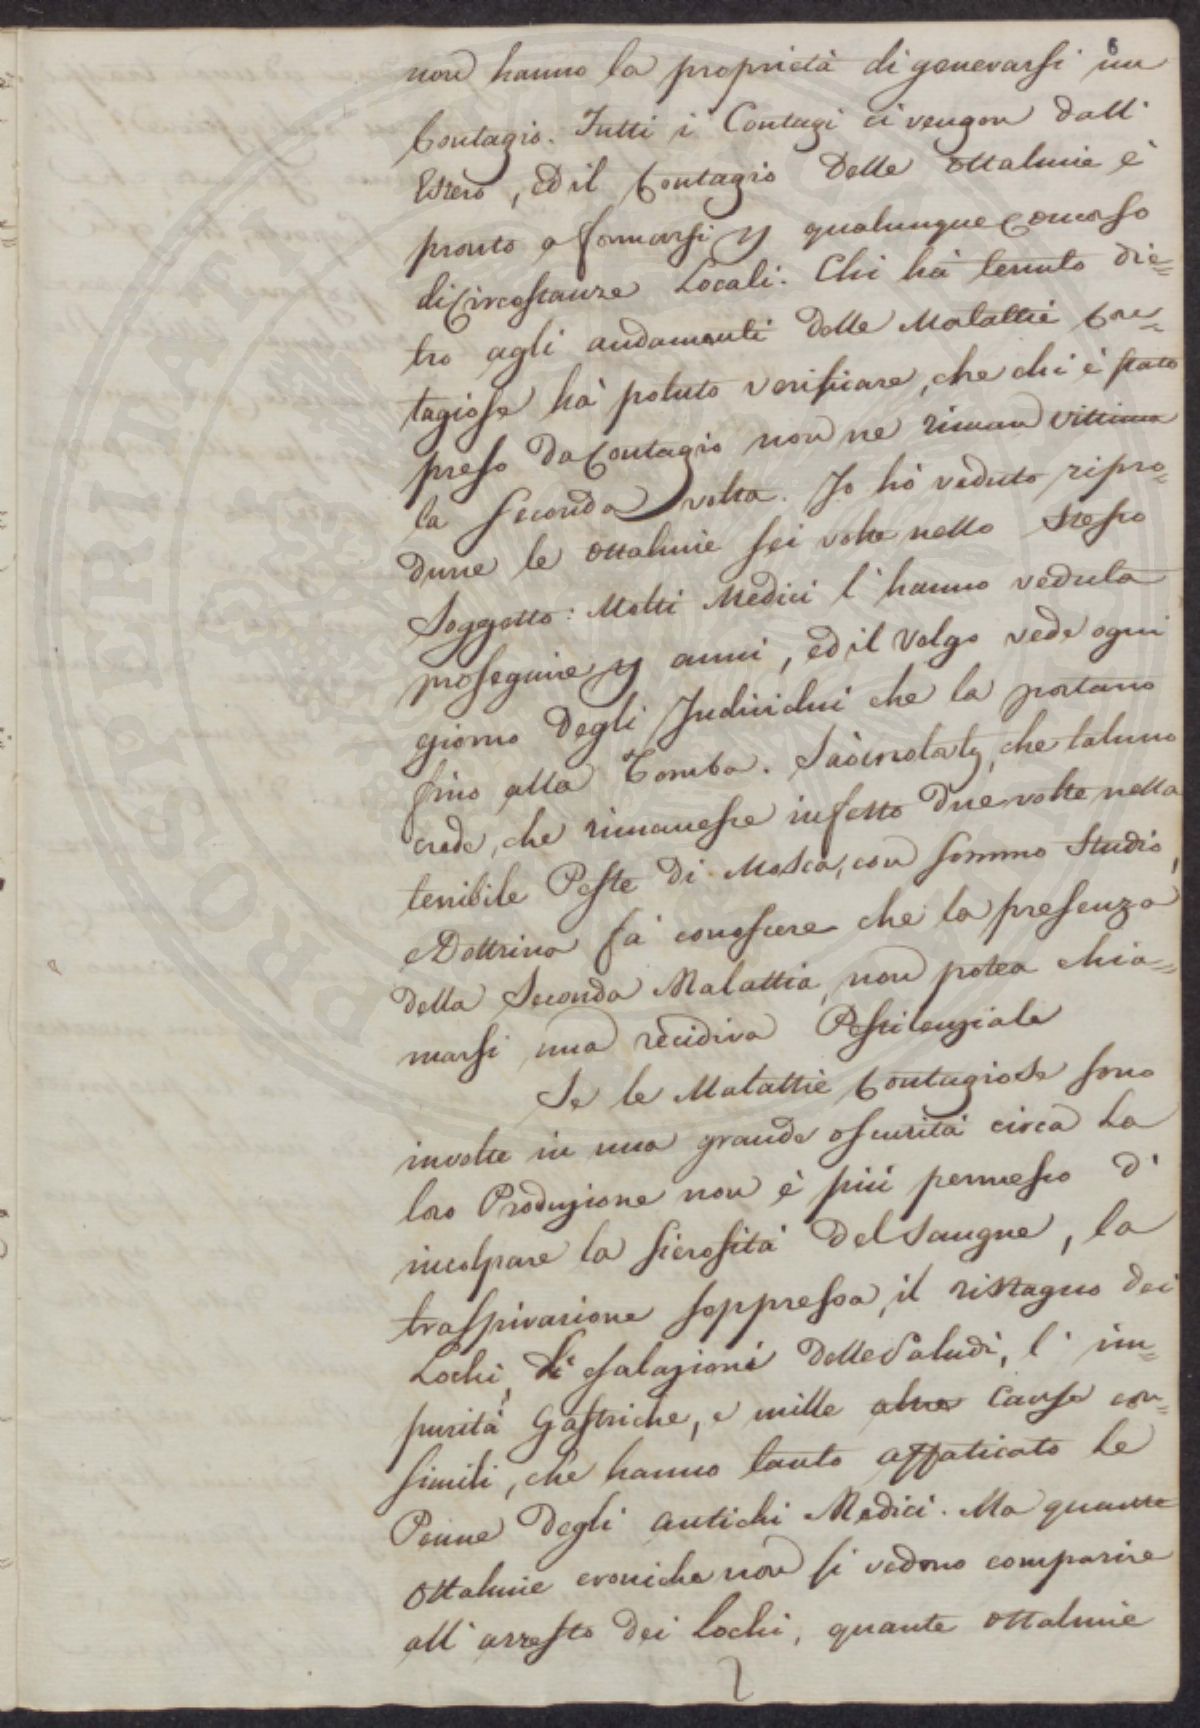 6
non hanno la proprietà di generarsi un
Contagio. Tutti i Contagi ci vengon dall'
Estero, ed il Contagio delle ottalmie è
pronto a formarsi p qualunque Concorso
di Circostanze Locali. Chi hà tenuto die=
tro agli andamenti delle Malattie Con=
tagiose hà potuto verificare, che chi è stato
preso da Contagio non ne riman vittima
la seconda volta. Io hò veduto ripro=
durre le ottalmie sei volte nello stesso
Soggetto: Molti Medici l'hanno veduta
proseguire p anni, ed il Volgo vede ogni
giorno degli Individui che la portano
fino alla Tomba. che taluno
crede, che rimanesse infetto due volte nella
terribile Peste di Mosca, con sommo studio,
e Dottrina fà conoscere che la presenza
della Seconda Malattia, non potea chia=
marsi una recidiva Pestilenziale
Se le Malattie Contagiose sono
involte in una grande oscurità circa La
loro Produzione non è più permesso d'
incolpare la sierosità del Sangue, la
traspirazione soppressa, il ristagno dei
Lochi, Li esalazioni delle Paludi, l'im=
purità Gastriche, e mille altre Cause con=
simili, che hanno tanto affaticato Le
Penne degli antichi Medici. Ma quante
ottalmie croniche non si vedono comparire
all'arresto dei Lochi, quante ottalmie